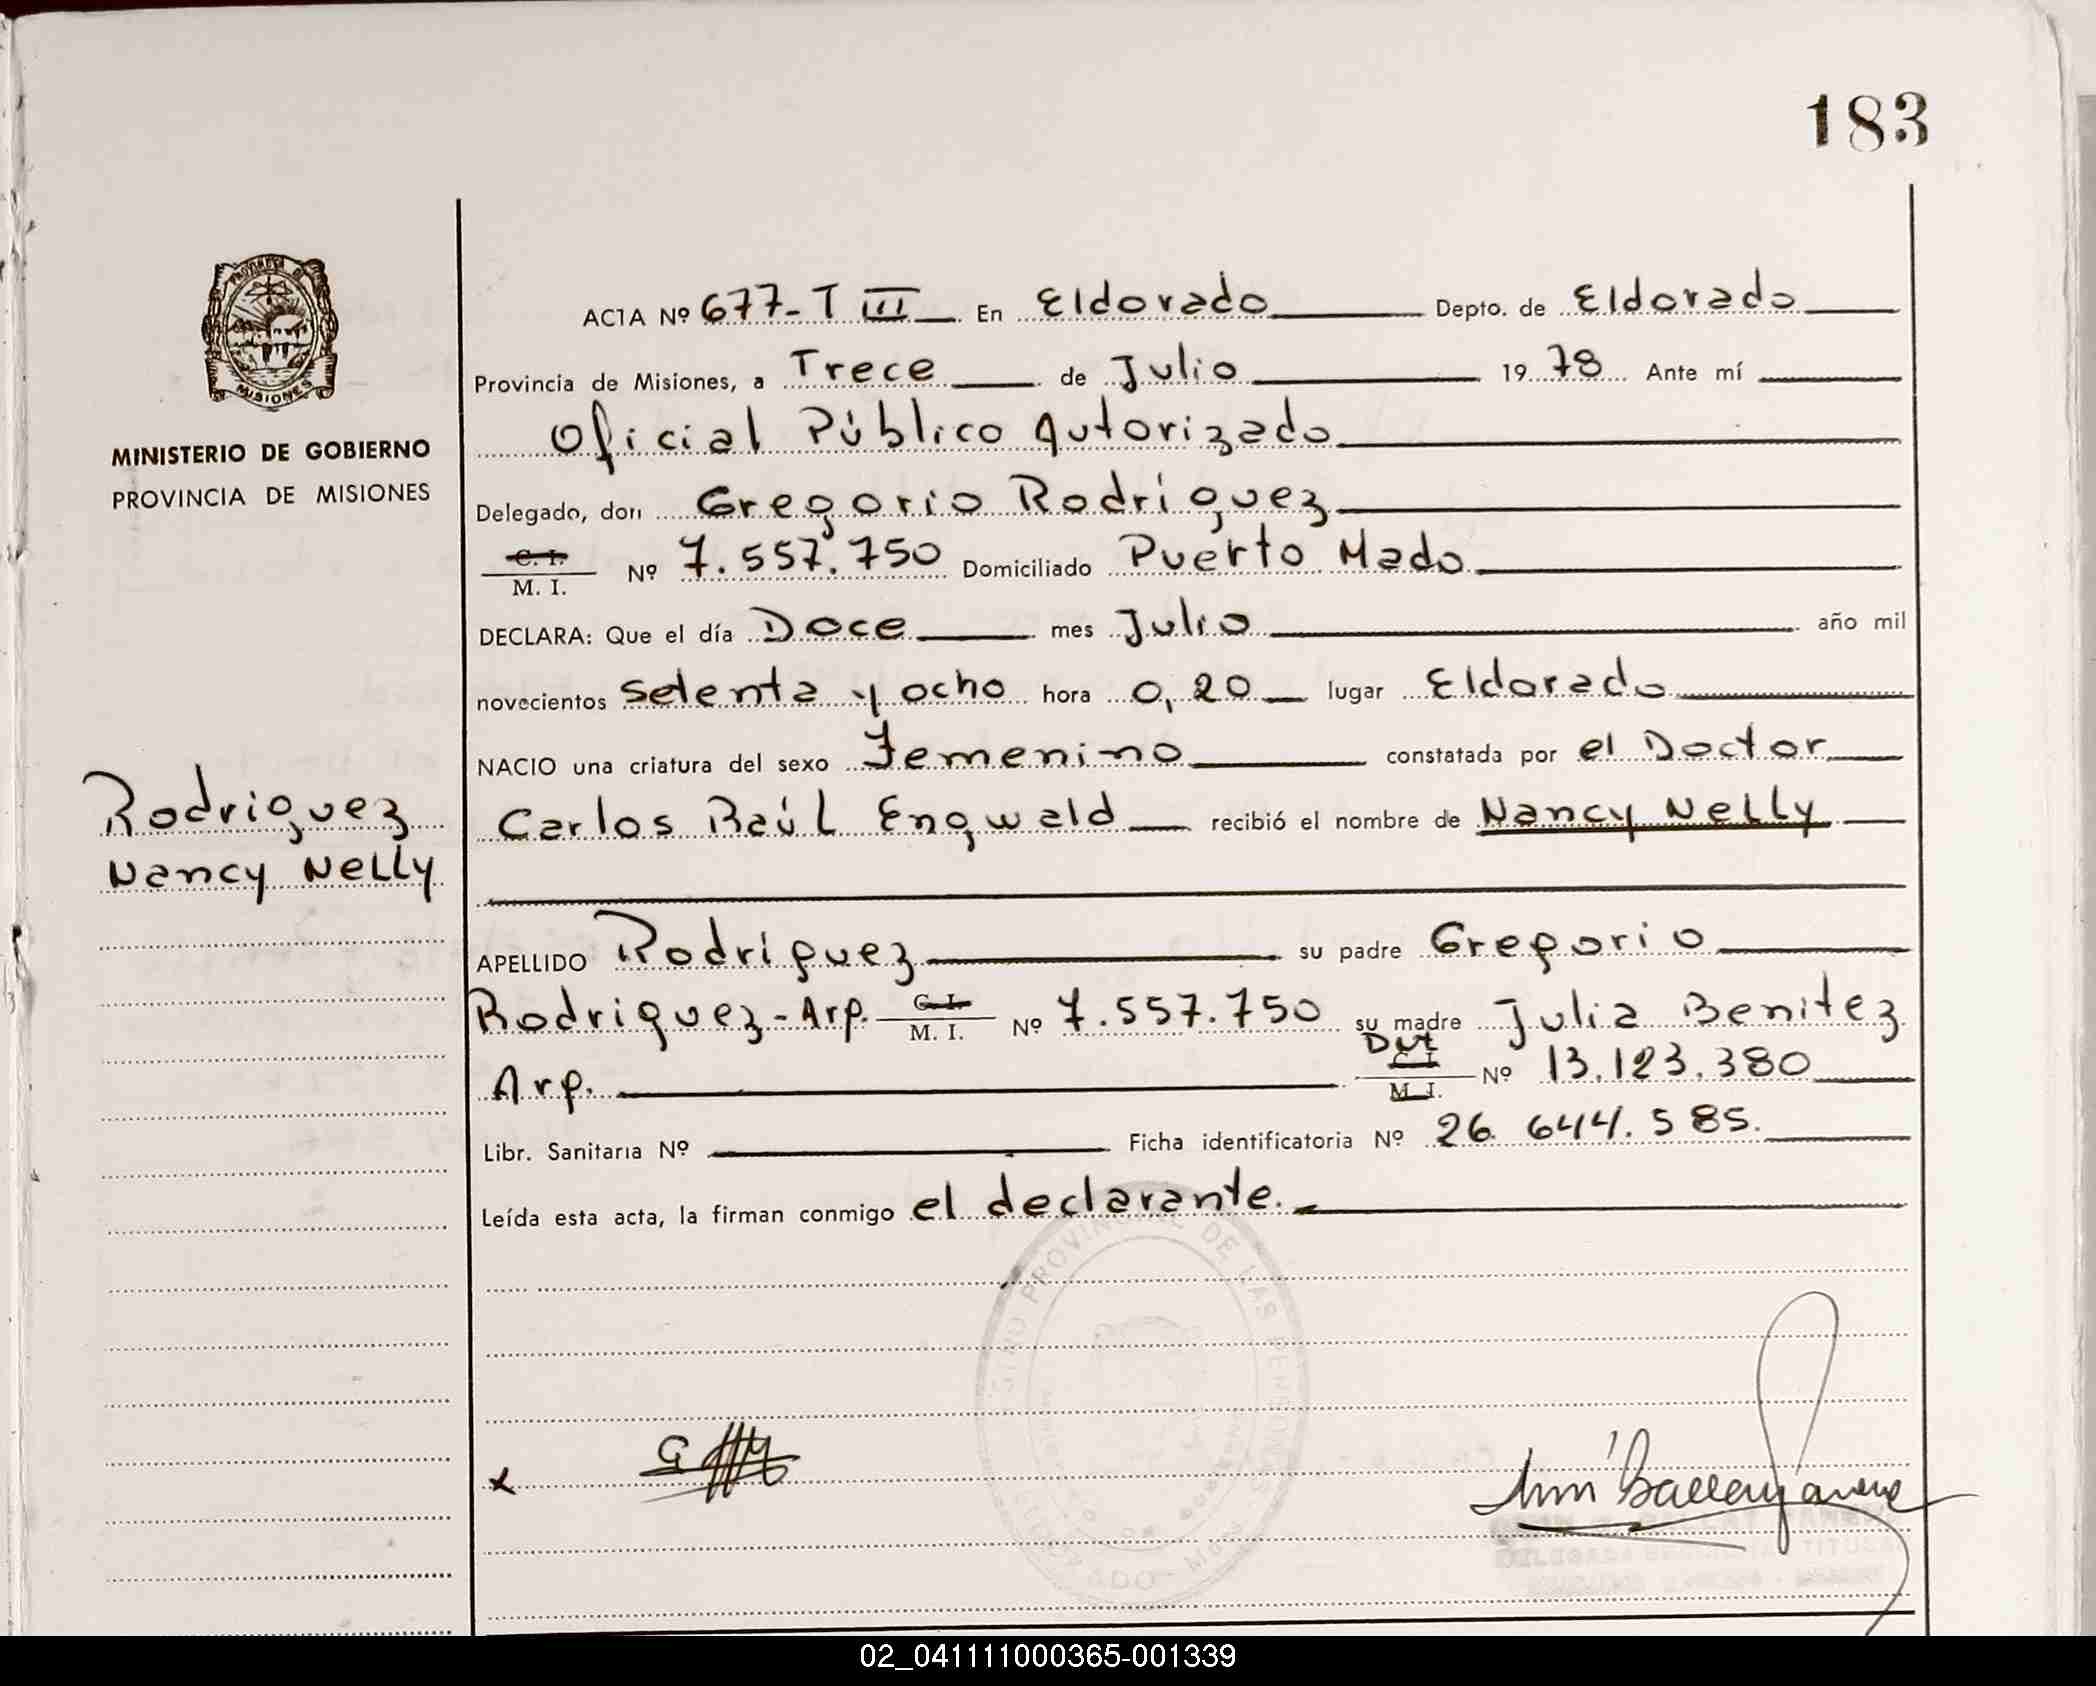 183
PROVINCIA DE
MISIONES
MINISTERIO DE GOBIERNO
PROVINCIA DE MISIONES
Rodriguez
Nancy Nelly
ACTA Nº 677-T III En Eldorado Depto. de Eldorado
Provincia de Misiones, a Trece de Julio 1978 Ante mí
Oficial Público Autorizado
Delegado, don Gregorio Rodriguez
C. I.
M. I. Nº 7.557.750 Domiciliado Puerto Mado
DECLARA: Que el día Doce mes Julio año mil
novecientos setenta y ocho hora 0,20 lugar Eldorado
NACIO una criatura del sexo Femenino constatada por el Doctor
Carlos Raúl Engwald recibió el nombre de Nancy Nelly
APELLIDO Rodriguez su padre Gregorio
Rodriguez-Arp. C. I. M. I. Nº 7.557.750 su madre Julia Benitez
Arp. Dut C. I. M. I. Nº 13.123.380
Libr. Sanitaria Nº Ficha identificatoria Nº 26.644.585.
Leída esta acta, la firman conmigo el declarante.
PROVINCIAL DE LAS PERSONAS
x
02_041111000365-001339